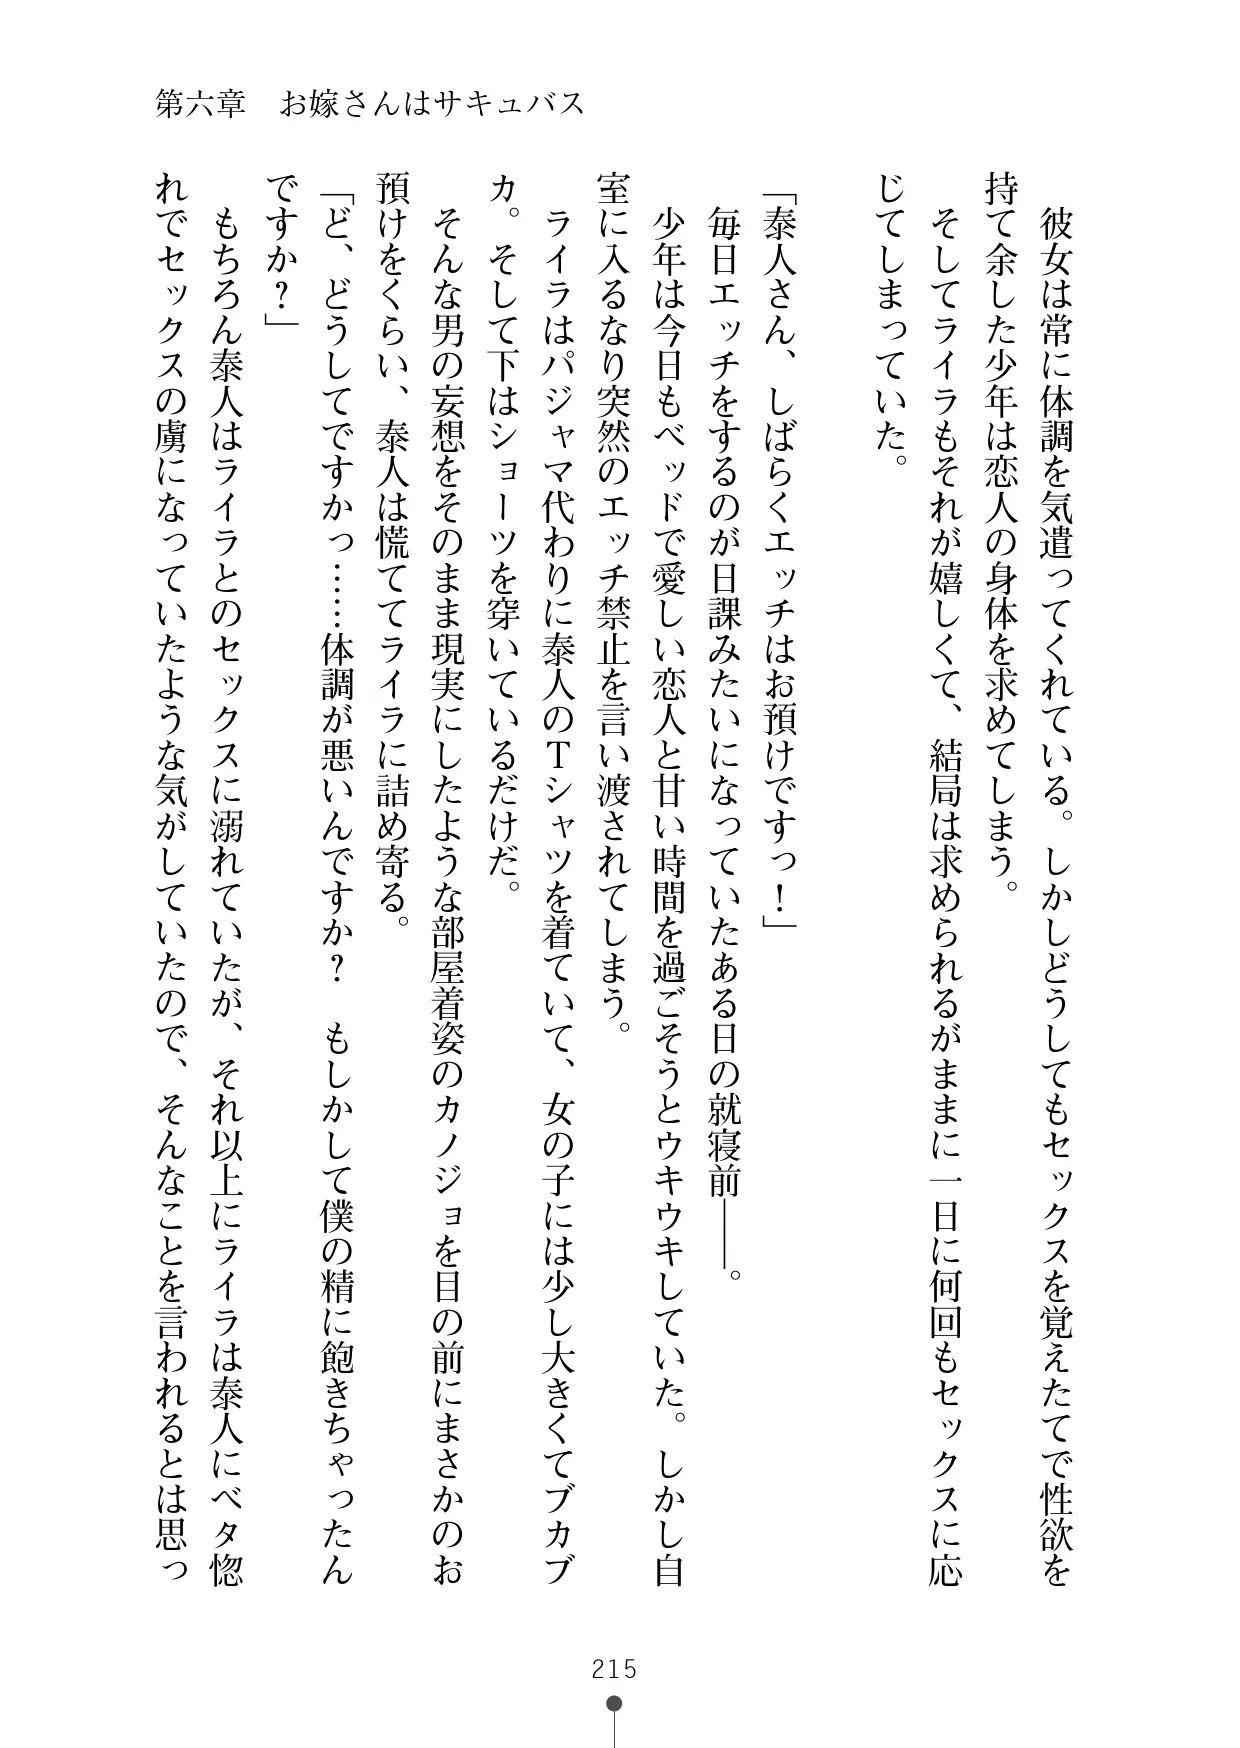 第六章　お嫁さんはサキュバス
　彼女は常に体調を気遣ってくれている。しかしどうしてもセックスを覚えたてで性欲を
持て余した少年は恋人の身体を求めてしまう。
　そしてライラもそれが嬉しくて、結局は求められるがままに一日に何回もセックスに応
じてしまっていた。
「泰人さん、しばらくエッチはお預けですっ！」
　毎日エッチをするのが日課みたいになっていたある日の就寝前――。
　少年は今日もベッドで愛しい恋人と甘い時間を過ごそうとウキウキしていた。しかし自
室に入るなり突然のエッチ禁止を言い渡されてしまう。
　ライラはパジャマ代わりに泰人のTシャツを着ていて、女の子には少し大きくてブカブ
カ。そして下はショーツを穿いているだけだ。
　そんな男の妄想をそのまま現実にしたような部屋着姿のカノジョを目の前にまさかのお
預けをくらい、泰人は慌ててライラに詰め寄る。
「ど、どうしてですかっ……体調が悪いんですか？　もしかして僕の精に飽きちゃったん
ですか？」
　もちろん泰人はライラとのセックスに溺れていたが、それ以上にライラは泰人にベタ惚
れでセックスの虜になっていたような気がしていたので、そんなことを言われるとは思っ
215